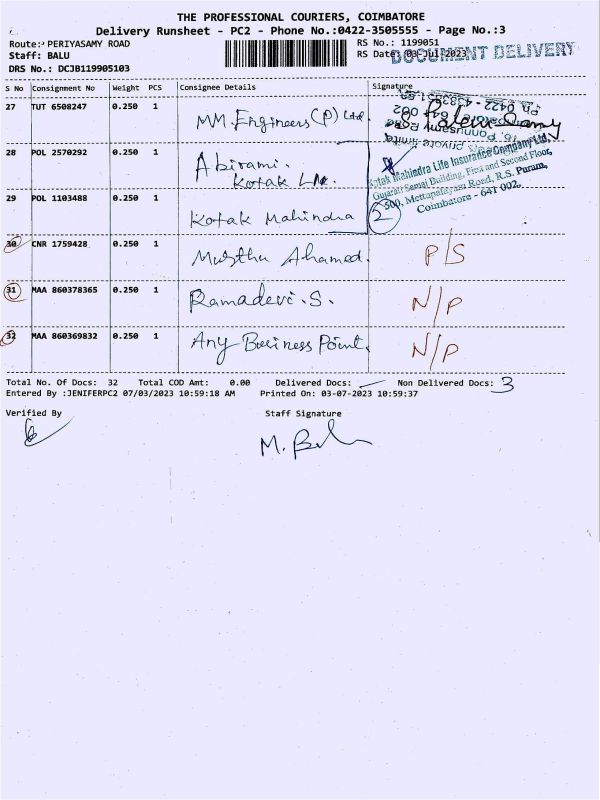 THE PROFESSIONAL COURIERS, COIMBATORE
Delivery Runsheet - PC2 - Phone No.:0422-3505555 - Page No.:3
Route: PERIYASAMY ROAD
RS No.: 1199051
Staff: BALU
RS Date: 03-Jul-2023
DOCUMENT DELIVERY
DRS No.: DCJB119905103
S No Consignment No Weight PCS Consignee Details Signature
27 TUT 6508247 0.250 1 MM. Engineers (P) Ltd.
28 POL 2570292 0.250 1 Abirami.
Kotak
29 POL 1103488 0.250 1 Kotak Mahindra
Kotak Mahindra Life Insurance Company Ltd,
Gujarati Samaj Building, First and Second Floor,
500, Mettupalayam Road, R.S. Puram,
Coimbatore - 641 002.
2
30 CNR 1759428 0.250 1 Ahamed. P/S
31 MAA 860378365 0.250 1 Ramadevi. S. N/P
32 MAA 860369832 0.250 1 Any Business Point. N/P
Total No. Of Docs: 32 Total COD Amt: 0.00 Delivered Docs: Non Delivered Docs: 3
Entered By :JENIFERPC2 07/03/2023 10:59:18 AM Printed On: 03-07-2023 10:59:37
Verified By Staff Signature